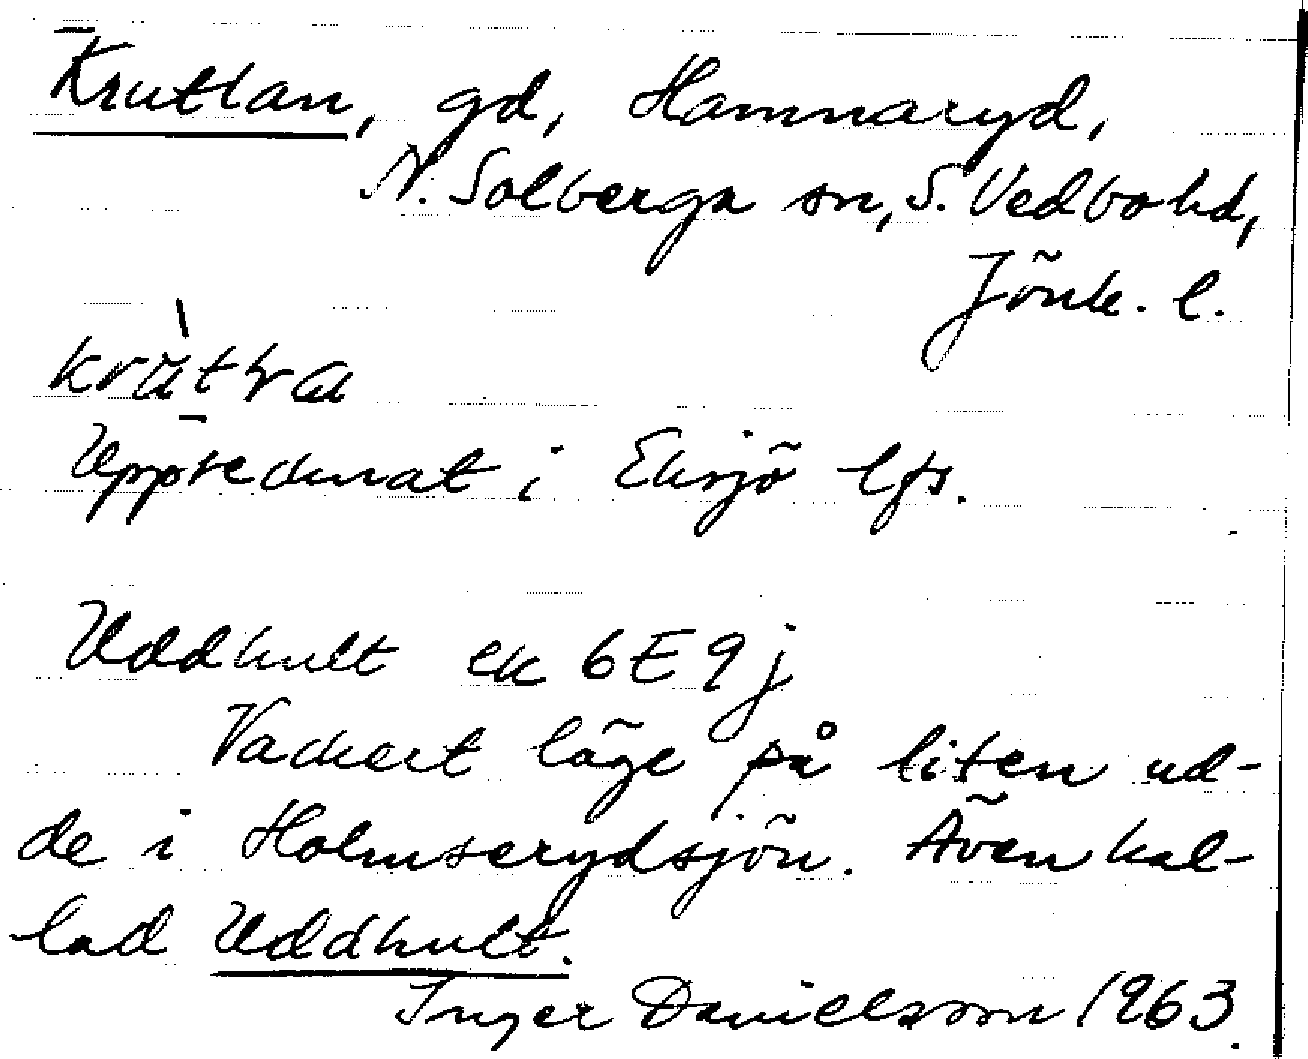 Kruttan, gd, Hamnaryd,
N. Solberga sn, S. Vedbo hd,
Jönk. l.
Upptecknat i Eksjö lfs.
Uddhult ek 6E9j
Vackert läge på liten ud-
de i Holmserydsjön. Även kal-
lad Uddhult.
Inger Danielsson 1963.